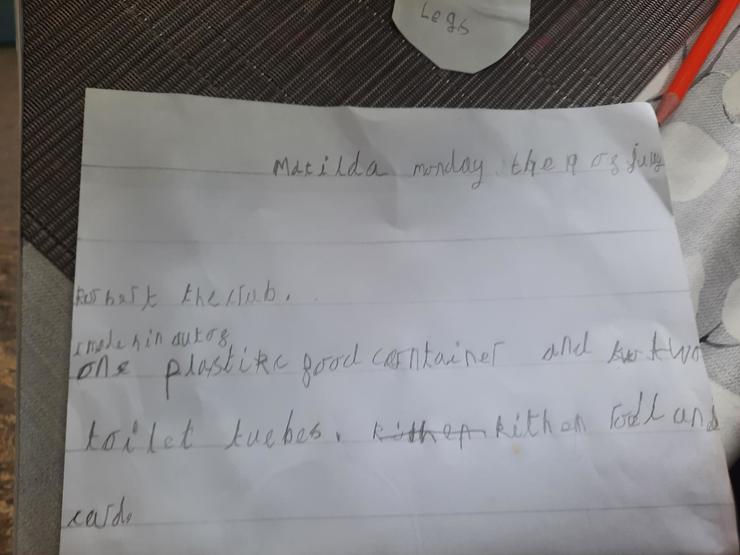 Legs
Matilda monday the 9 of july
kerbert the crab.
i made him out of
one plastikc food carntainer and two
toilet tuebes. kithen kithen roall and
card.